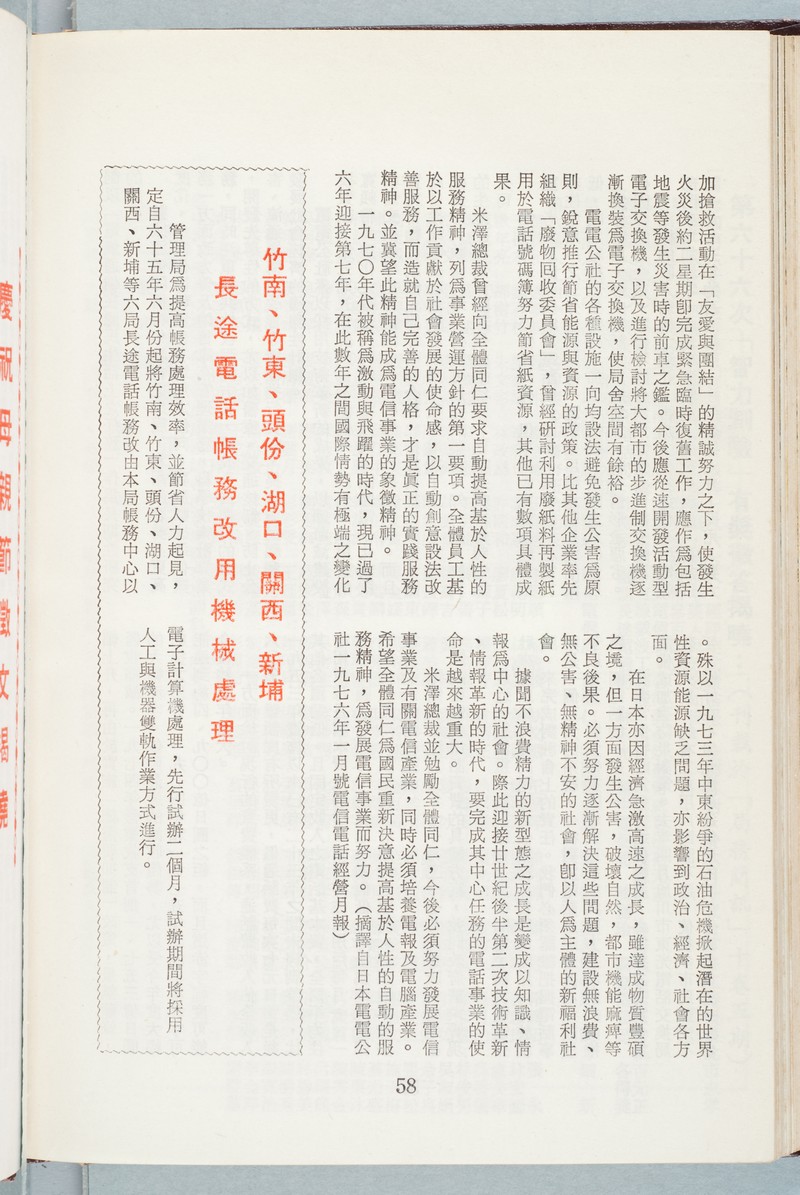 加搶救活動在「友愛與團結」的精誠努力之下，使發生
火災後約二星期卽完成緊急臨時復舊工作，應作爲包括
地震等發生災害時的前車之鑑。今後應從速開發活動型
電子交換機，以及進行檢討將大都市的步進制交換機逐
漸換裝爲電子交換機，使局舍空間有餘裕。
電電公社的各種設施一向均設法避免發生公害爲原
則，銳意推行節省能源與資源的政策。比其他企業率先
組織「廢物回收委員會」，曾經研討利用廢紙料再製紙
用於電話號碼簿努力節省紙資源，其他已有數項具體成
果。
米澤總裁曾經向全體同仁要求自動提高基於人性的
服務精神，列爲事業營運方針的第一要項。全體員工基
於以工作貢獻於社會發展的使命感，以自動創意設法改
善服務，而造就自己完善的人格，才是眞正的實踐服務
精神。並冀望此精神能成爲電信事業的象徵精神。
一九七〇年代被稱爲激動與飛躍的時代，現已過了
六年迎接第七年，在此數年之間國際情勢有極端之變化
。殊以一九七三年中東紛爭的石油危機掀起潛在的世界
性資源能源缺乏問題，亦影響到政治、經濟、社會各方
面。
在日本亦因經濟急激高速之成長，雖達成物質豐碩
之境，但一方面發生公害，破壞自然，都市機能麻痺等
不良後果。必須努力逐漸解決這些問題，建設無浪費、
無公害、無精神不安的社會，卽以人爲主體的新福利社
會。
據聞不浪費精力的新型態之成長是變成以知識、情
報爲中心的社會。際此迎接廿世紀後半第二次技術革新
、情報革新的時代，要完成其中心任務的電話事業的使
命是越來越重大。
米澤總裁並勉勵全體同仁，今後必須努力發展電信
事業及有關電信產業，同時必須培養電報及電腦產業。
希望全體同仁爲國民重新決意提高基於人性的自動的服
務精神，爲發展電信事業而努力。（摘譯自日本電電公
社一九七六年一月號電信電話經營月報）
竹南、竹東、頭份、湖口、關西、新埔
長途電話帳務改用機械處理
管理局爲提高帳務處理效率，並節省人力起見，
定自六十五年六月份起將竹南、竹東、頭份、湖口、
關西、新埔等六局長途電話帳務改由本局帳務中心以
電子計算機處理，先行試辦二個月，試辦期間將採用
人工與機器雙軌作業方式進行。
58
慶祝母親節徵文揭曉